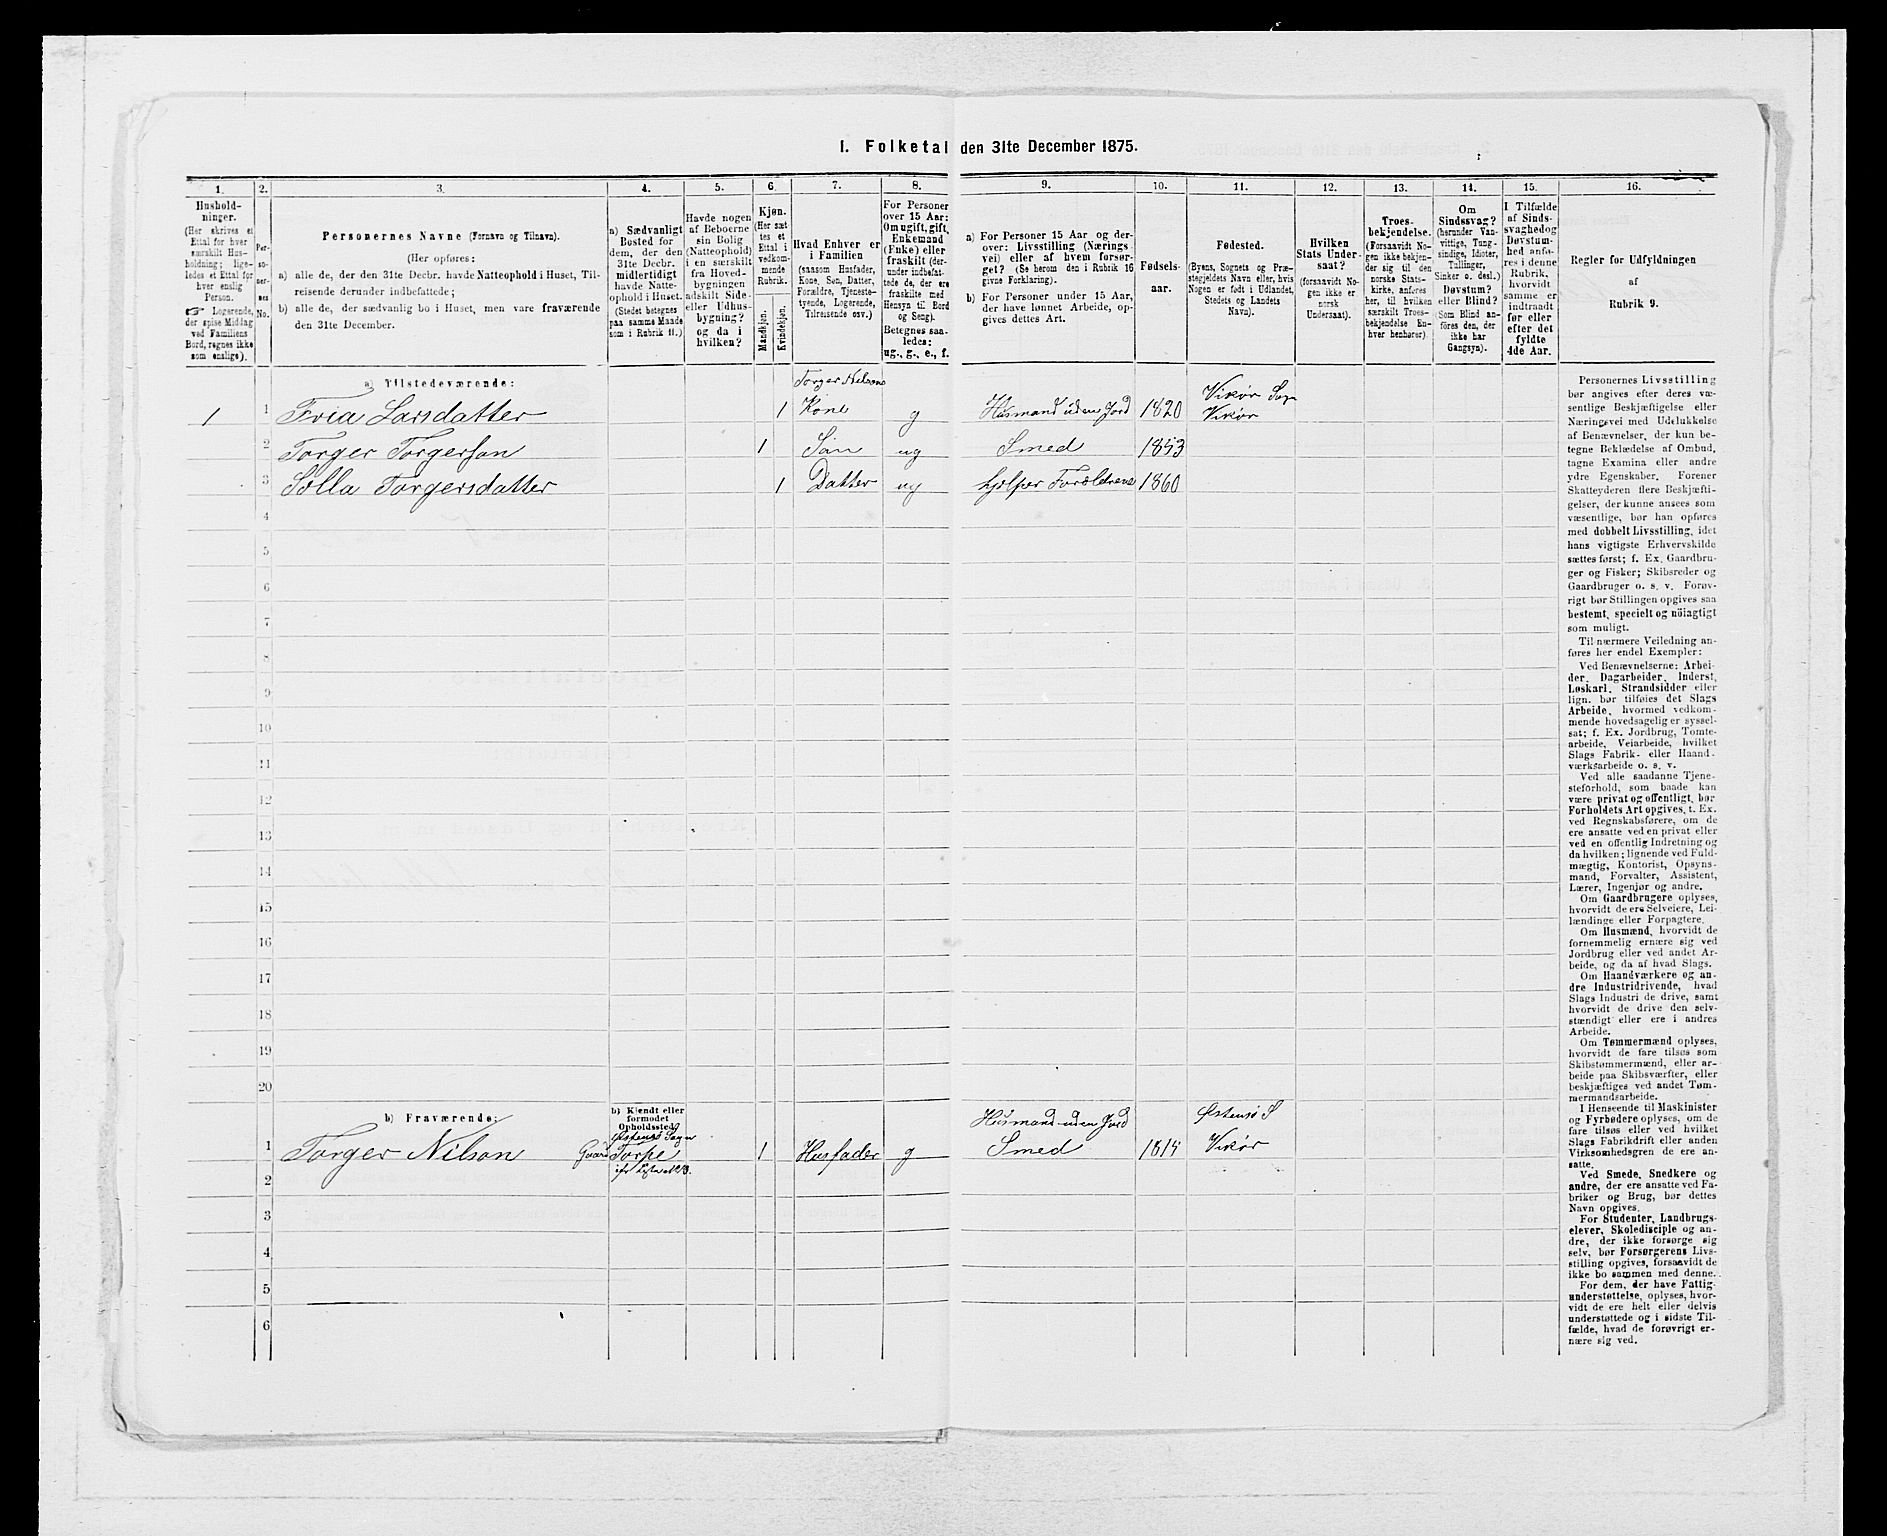 I. Folketal den 31te December 1875.
1.
2.
3.
4.
5.
6.
7.
8.
9.
10.
11.
12.
13.
14.
15.
16.
Hushold-
ninger.
(Her skrives et
Ettal for hver
særskilt Hus-
holdning; lige-
ledes et Ettal for
hver enslig
Person.
☞ Logerende,
der spise Middag
ved Familiens
Bord, regnes ikke
som enslige).
Per-
so-
ner-
nes
No.
Personernes Navne (Fornavn og Tilnavn).
(Her opføres:
a) alle de, der den 31te Decbr. havde Natteophold i Huset, Til-
reisende derunder indbefattede;
b) alle de, der sædvanlig bo i Huset, men vare fraværende
den 31te December.
a) Sædvanligt
Bosted for
dem, der den
31te Decbr.
midlertidigt
havde Natte-
ophold i Huset.
(Stedet betegnes
paa samme Maade
som i Rubrik 11.)
Havde nogen
af Beboerne
sin Bolig
(Natteophold)
i en særskilt
fra Hoved-
bygningen
adskilt Side-
eller Udhus-
bygning?
og da i
hvilken?
Kjøn.
(Her sæt-
tes et
Ettal i
vedkom-
mende
Rubrik.
Mandkjøn.
Kvindekjøn.
Hvad Enhver er
i Familien
(saasom Husfader,
Kone, Søn, Datter,
Forældre, Tjeneste-
tyende, Logerende,
Tilreisende osv.)
For Personer
over 15 Aar:
Om ugift, gift,
Enkemand
(Enke) eller
fraskilt (der-
under indbefat-
tede de, der ere
fraskilte med
Hensyn til Bord
og Seng).
Betegnes saa-
ledes:
ug., g., e., f.
a) For Personer 15 Aar og der-
over: Livsstilling (Nærings-
vei) eller af hvem forsør-
get? (Se herom den i Rubrik 16
givne Forklaring).
b) For Personer under 15 Aar,
der have lønnet Arbeide, op-
gives dettes Art.
Fødsels-
aar.
Fødested.
(Byens, Sognets og Præ-
stegjeldets Navn eller, hvis
Nogen er født i Udlandet,
Stedets og Landets
Navn).
Hvilken
Stats Under-
saat?
(forsaavidt No-
gen ikke er
norsk
Undersaat).
Troes-
bekjendelse.
(Forsaavidt No-
gen ikke bekjen-
der sig til den
norske Stats-
kirke, anføres
her, til hvilken
særskilt Troes-
bekjendelse En-
hver henhører).
Om
Sindssvag?
(herunder Van-
vittige, Tung-
sindige, Idioter,
Tullinger,
Sinker o. desl.)
Døvstum?
eller Blind?
(Som Blind an-
føres den, der
ikke har
Gangsyn).
I Tilfælde
af Sinds-
svaghed og
Døvstum-
hed anfø-
res i denne
Rubrik,
hvorvidt
samme er
indtraadt
før eller
efter det
fyldte
4de Aar.
Regler for Udfyldningen
af
Rubrik 9.
a) Tilstedeværende:
Torger Nilsens
Vikør Sogn
1 1 Fria Larsdatter 1 Kone g Husmand uden Jord 1820 Vikør
2 Torger Torgerson 1 Søn ug Smed 1853
3 Solla Torgersdatter 1 Datter ug hjelper Forældrene 1860
4
5
6
7
8
9
10
11
12
13
14
15
16
17
18
19
20
b) Fraværende:
b) Kjendt eller
formodet
Opholdssted.
Østensø Sogn
Husmand uden Jord
Østensø S
1 Torger Nilson Gaard Torpe 1 Husfader g Smed 1814 Vikør
2
3
4
5
6
Personernes Livsstilling
bør angives efter deres væ-
sentlige Beskjæftigelse eller
Næringsvei med Udelukkelse
af Benævnelser, der kun be-
tegne Beklædelse af Ombud,
tagne Examina eller andre
ydre Egenskaber. Forener
Skatteyderen flere Beskjæfti-
gelser, der kunne ansees som
væsentlige, bør han opføres
med dobbelt Livsstilling, idet
hans vigtigste Erhvervskilde
sættes først; f. Ex. Gaardbru-
ger og Fisker; Skibsreder og
Gaardbruger o. s. v. Forøv-
rigt bør Stillingen opgives saa
bestemt, specielt og nøiagtigt
som muligt.
Til nærmere Veiledning an-
føres her endel Exempler:
Ved Benævnelserne: Arbei-
der, Dagarbeider, Inderst,
Løskarl, Strandsidder eller
lign. bør tilføies det Slags
Arbeide, hvormed vedkom-
mende hovedsagelig er syssel-
sat; f. Ex. Jordbrug, Tomte-
arbeide, Veiarbeide, hvilket
Slags Fabrik- eller Haand-
værksarbeide o. s. v.
Ved alle saadanne Tjene-
steforhold, som baade kan
være privat og offentligt, bør
Forholdets Art opgives, t. Ex.
ved Regnskabsførere, om de
ere ansatte ved en privat eller
ved en offentlig Indretning og
da hvilken; lignende ved Fuld-
mægtig, Kontorist, Opsyns-
mand, Forvalter, Assistent,
Lærer, Ingenjør og andre.
Om Gaardbrugere oplyses,
hvorvidt de ere Selveiere, Lei-
lændinge eller Forpagtere.
Om Husmænd, hvorvidt de
fornemmelig ernære sig ved
Jordbrug eller ved andet Ar-
beide, og da af hvad Slags.
Om Haandværkere og an-
dre Industridrivende, hvad
Slags Industri de drive, samt
hvorvidt de drive den selv-
stændigt eller ere i andres
Arbeide.
Om Tømmermænd oplyses,
hvorvidt de fare tilsøs som
Skibstømmermænd, eller ar-
beide paa Skibsværfter, eller
beskjæftiges ved andet Tøm-
mermandsarbeide.
I Henseende til Maskinister
og Fyrbødere oplyses, om de
fare tilsøs eller ved hvilket
Slags Fabrikdrift eller anden
Virksomhedsgren de ere an-
satte.
Ved Smede, Snedkere og
andre, der ere ansatte ved Fa-
briker og Brug, bør dettes
Navn opgives.
For Studenter, Landbrugs-
elever, Skoledisciple og an-
dre, der ikke forsørge sig
selv, bør Forsørgerens Livs-
stilling opgives, forsaavidt de
ikke bo sammen med denne.
For dem, der have Fattig-
understøttelse, oplyses, hvor-
vidt de ere helt eller delvis
understøttede og i sidste Til-
fælde, hvad de forøvrigt er-
nære sig ved.